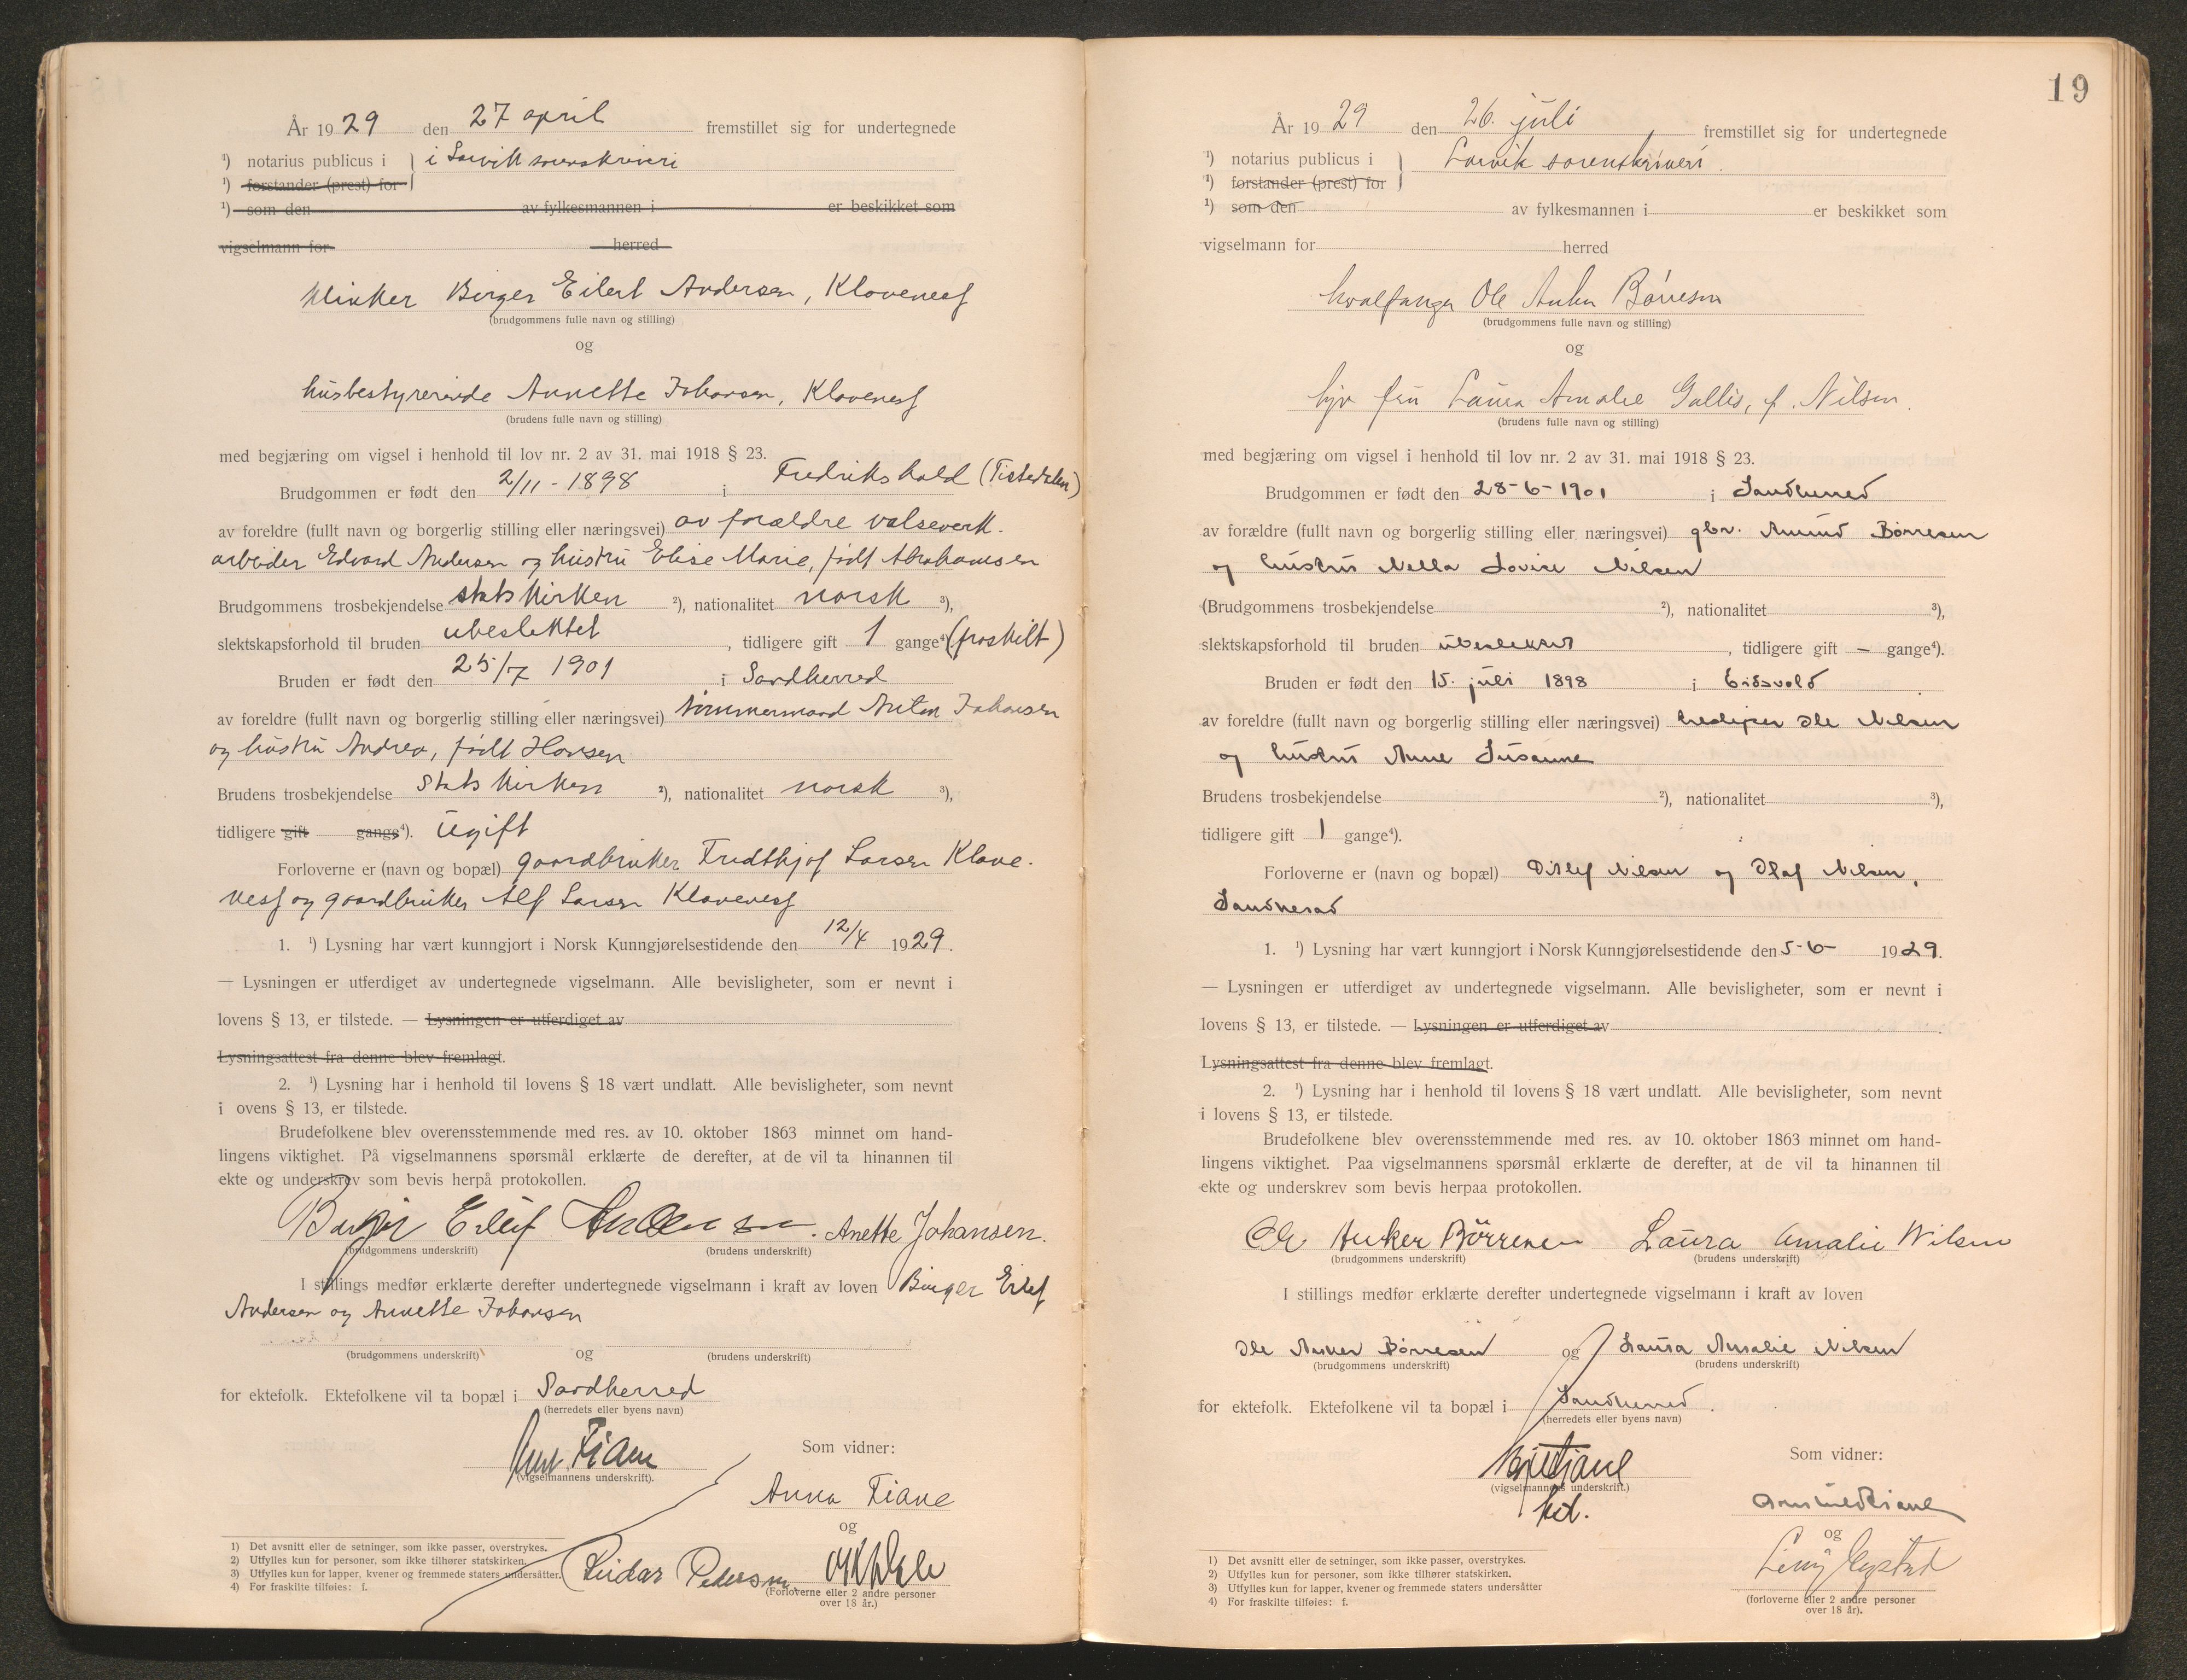 År 1929 den 27 april fremstillet sig for undertegnede
¹) notarius publicus i } i Larvik sorenskriveri
¹) forstander (prest) for
¹) som den av fylkesmannen i er beskikket som
vigselmann for herred
klinker Birger Eilert Andersen, Klavenesf
(brudgommens fulle navn og stilling)
og
husbestyrerinde Annette Johansen, Klavenesf
(brudens fulle navn og stilling)
med begjæring om vigsel i henhold til lov nr. 2 av 31. mai 1918 § 23.
Brudgommen er født den 2/11-1898 i Fredrikshald (Tistedalen)
av foreldre (fullt navn og borgerlig stilling eller næringsvei) av forældre valseverk.
arbeider Edvard Andersen og hustru Elise Marie, født Abrahamsen
Brudgommens trosbekjendelse statskirken ²), nationalitet norsk ³),
slektskapsforhold til bruden ubeslektet, tidligere gift 1 gange⁴) (fraskilt)
Bruden er født den 25/7 1901 i Sandherred
av foreldre (fullt navn og borgerlig stilling eller næringsvei) tømmermand Anton Johansen
og hustru Andrea, født Hansen
Brudens trosbekjendelse statskirken ²), nationalitet norsk ³),
tidligere gift gange⁴). ugift
Forloverne er (navn og bopæl) gaardbruker Fredthjof Larsen Klave-
nesf og gaardbruker Alf Larsen Klavenesf
1. ¹) Lysning har vært kunngjort i Norsk Kunngjørelsestidende den 12/4 1929.
— Lysningen er utferdiget av undertegnede vigselmann. Alle bevisligheter, som er nevnt i
lovens § 13, er tilstede. — Lysningen er utferdiget av
Lysningsattest fra denne blev fremlagt.
2. ¹) Lysning har i henhold til lovens § 18 vært undlatt. Alle bevisligheter, som nevnt
i ovens § 13, er tilstede.
Brudefolkene blev overensstemmende med res. av 10. oktober 1863 minnet om hand-
lingens viktighet. På vigselmannens spørsmål erklærte de derefter, at de vil ta hinannen til
ekte og underskrev som bevis herpå protokollen.
Birger Eilif Andersen. Anette Johansen.
(brudgommens underskrift) (brudens underskrift)
I stillings medfør erklærte derefter undertegnede vigselmann i kraft av loven Birger Eilef
Andersen og Annette Johansen
(brudgommens underskrift) og (brudens underskrift)
for ektefolk. Ektefolkene vil ta bopæl i Sandherred
(herredets eller byens navn)
Fiane
(vigselmannens underskrift).
Som vidner:
Anna Fiane
og
Reidar Pedersen
(Forloverne eller 2 andre personer
over 18 år.)
1) Det avsnitt eller de setninger, som ikke passer, overstrykes.
2) Utfylles kun for personer, som ikke tilhører statskirken.
3) Utfylles kun for lapper, kvener og fremmede staters undersåtter.
4) For fraskilte tilføies: f.
19
År 1929 den 26. juli fremstillet sig for undertegnede
¹) notarius publicus i } Larvik sorenskriveri.
¹) forstander (prest) for
¹) som den av fylkesmannen i er beskikket som
vigselmann for herred
hvalfanger Ole Anker Børresen
(brudgommens fulle navn og stilling)
og
fru Laura Amalie Gallis, f. Nilsen.
(brudens fulle navn og stilling)
med begjæring om vigsel i henhold til lov nr. 2 av 31. mai 1918 § 23.
Brudgommen er født den 28-6-1901 i Sandherred
av forældre (fullt navn og borgerlig stilling eller næringsvei) gbr. Amund Børresen
og hustru Nella Lovise Nilsen
(Brudgommens trosbekjendelse ²), nationalitet ³),
slektskapsforhold til bruden ubeslektet, tidligere gift — gange⁴).
Bruden er født den 15. juli 1898 i Eidsvold
av foreldre (fullt navn og borgerlig stilling eller næringsvei) Ole Nilsen
og hustru Anne Susanne
Brudens trosbekjendelse ²), nationalitet ³),
tidligere gift 1 gange⁴).
Forloverne er (navn og bopæl) Ditlef Nilsen og Olaf Nilsen,
Sandherad
1. ¹) Lysning har vært kunngjort i Norsk Kunngjørelsestidende den 5-6- 1929.
— Lysningen er utferdiget av undertegnede vigselmann. Alle bevisligheter, som er nevnt i
lovens § 13, er tilstede. — Lysningen er utferdiget av
Lysningsattest fra denne blev fremlagt.
2. ¹) Lysning har i henhold til lovens § 18 vært undlatt. Alle bevisligheter, som nevnt
i lovens § 13, er tilstede.
Brudefolkene blev overensstemmende med res. av 10. oktober 1863 minnet om hand-
lingens viktighet. Paa vigselmannens spørsmål erklærte de derefter, at de vil ta hinannen til
ekte og underskrev som bevis herpaa protokollen.
Ole Anker Börresen Laura Amalie Nilsen
(brudgommens underskrift) (brudens underskrift)
I stillings medfør erklærte derefter undertegnede vigselmann i kraft av loven
Ole Anker Børresen og Laura Amalie Nilsen
(brudgommens underskrift) (brudens underskrift)
for ektefolk. Ektefolkene vil ta bopæl i Sandherred.
(herredets eller byens navn)
(vigselmannens underskrift.)
Som vidner:
og
(forloverne eller 2 andre personer
over 18 år).
1) Det avsnitt eller de setninger, som ikke passer, overstrykes.
2) Utfylles kun for personer, som ikke tilhører statskirken.
3) Utfylles kun for lapper, kvener og fremmede staters undersåtter
4) For fraskilte tilføies: f.